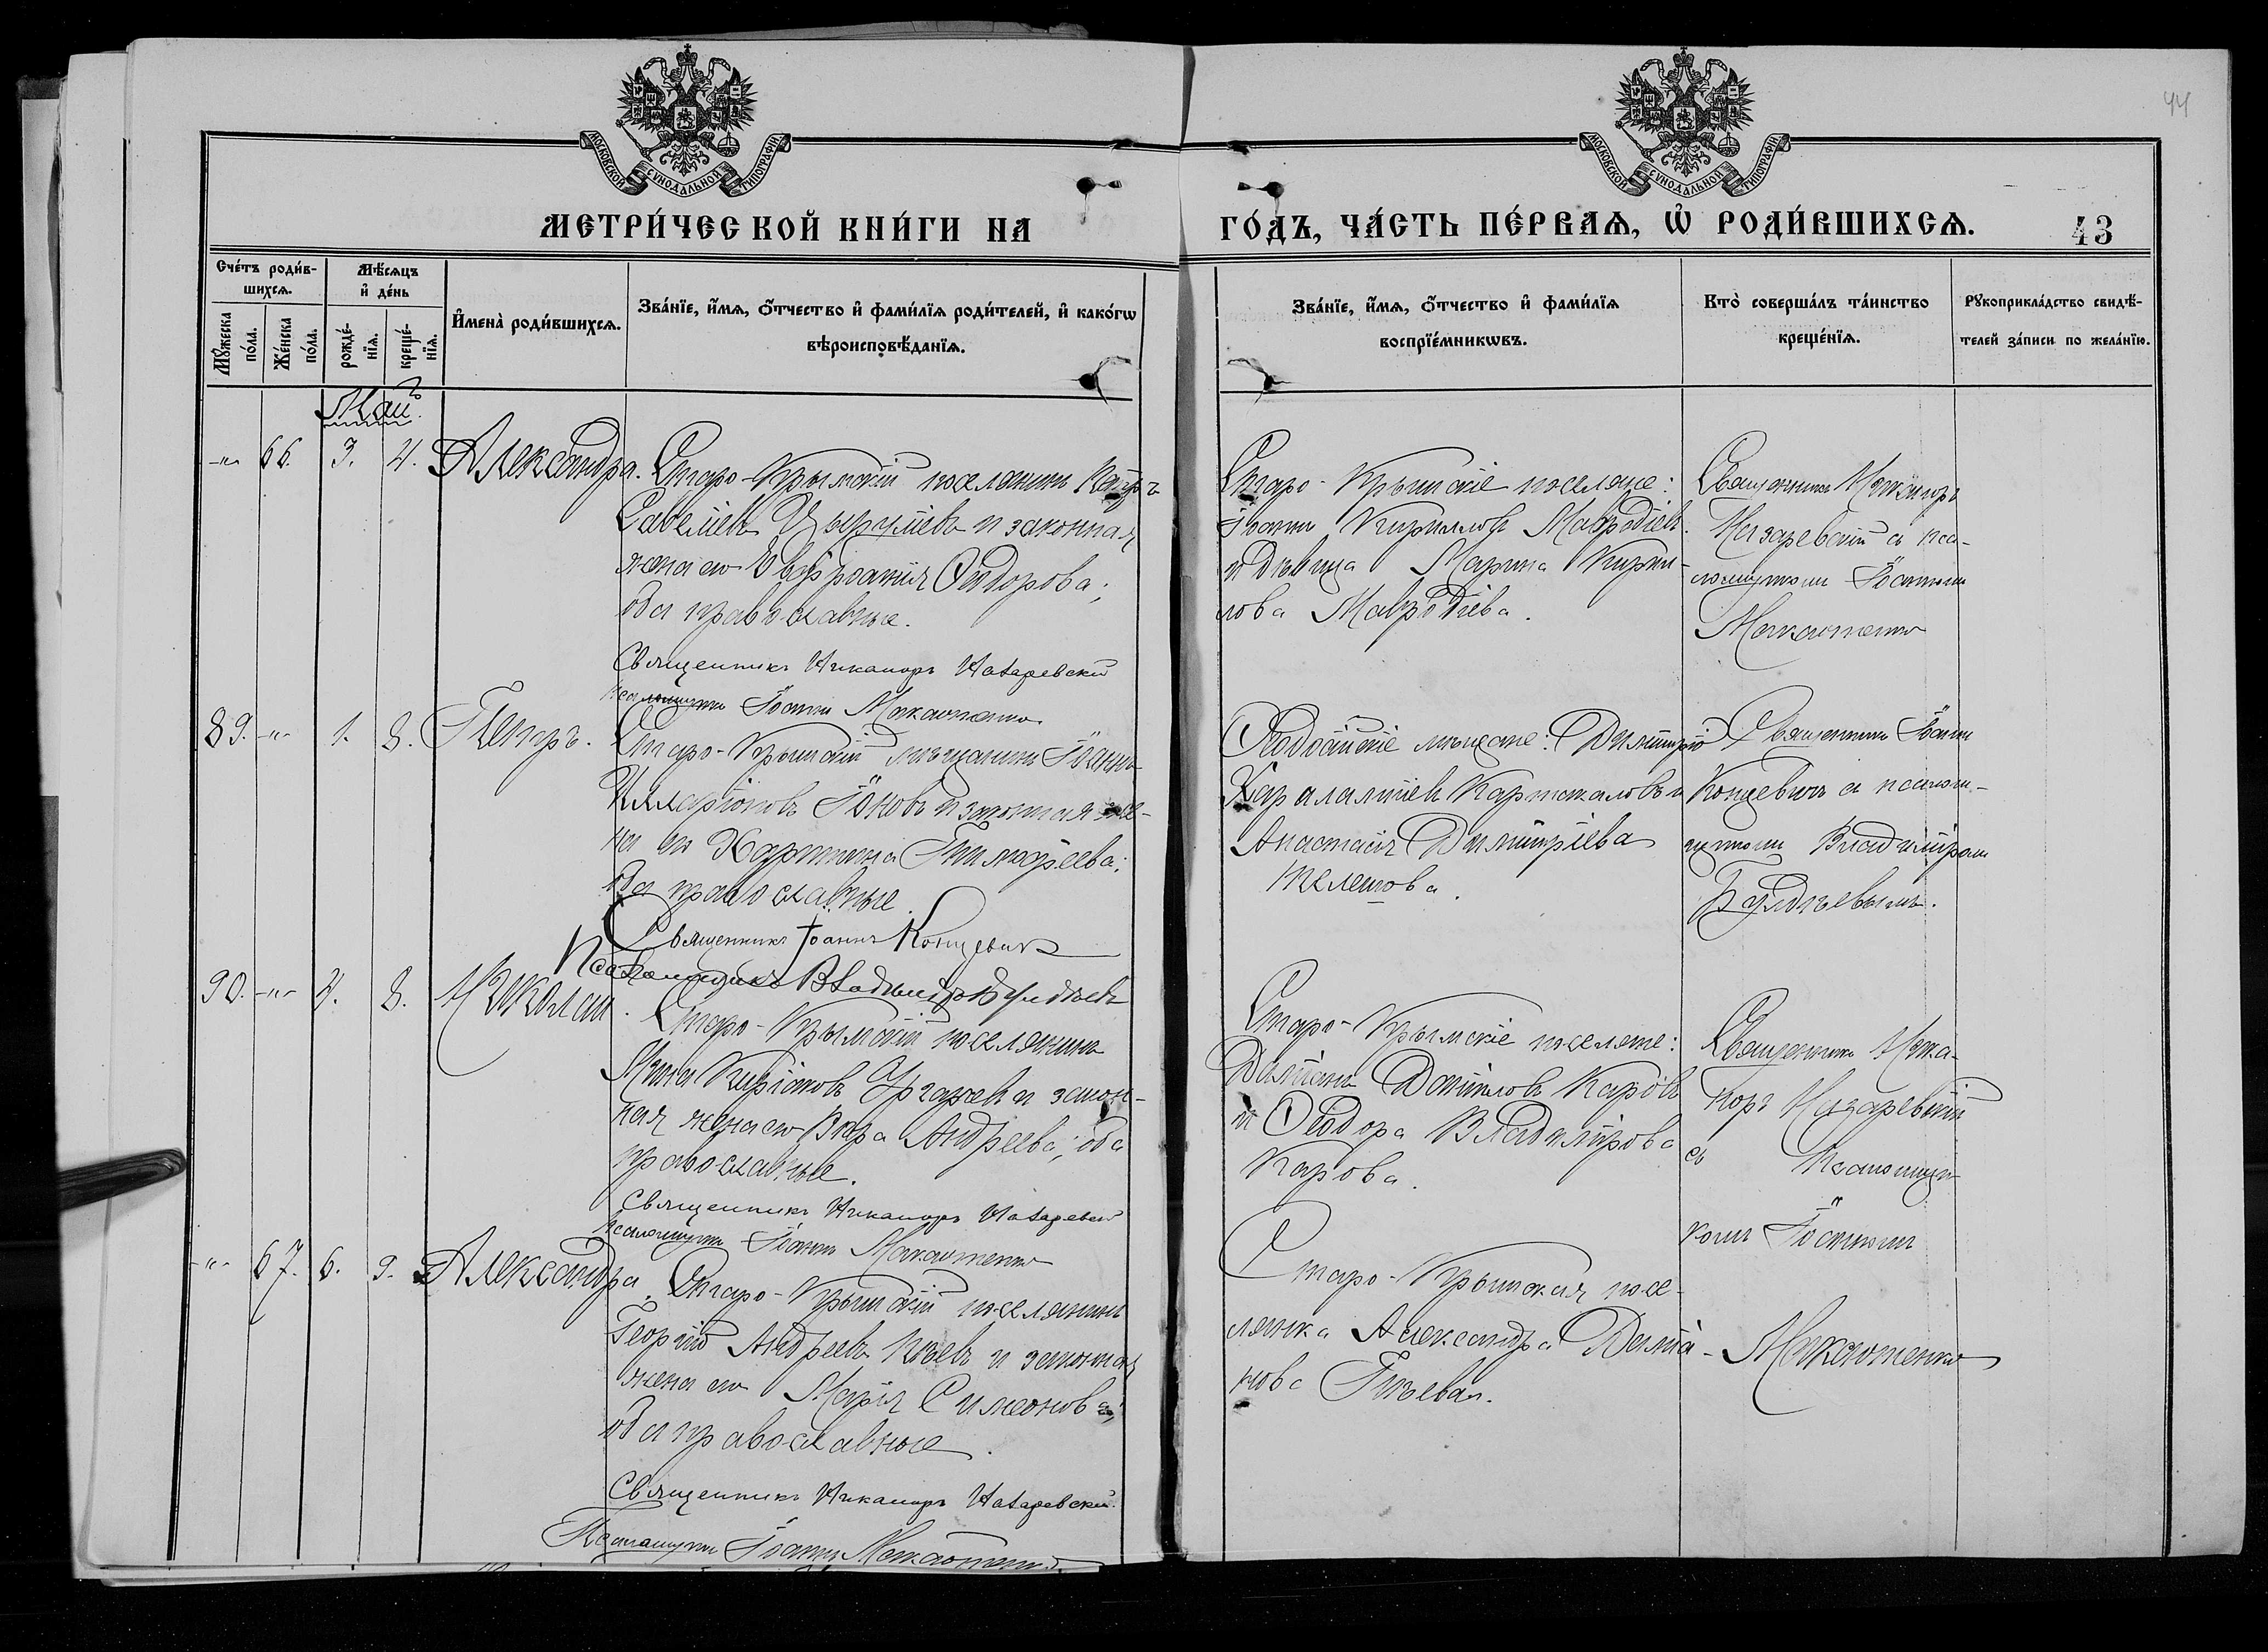 44
МОСКОВСКОЙ СѴНОДАЛЬНОЙ ТИПОГРАФІИ.
МОСКОВСКОЙ СѴНОДАЛЬНОЙ ТИПОГРАФІИ.
МЕТРИ́ЧЕСКОЙ КНИ́ГИ НА
ГО́ДЪ, ЧА́СТЬ ПЕ́РВАѦ, Ѽ РОДИ́ВШИХСѦ.
43
Сче́тъ роди́в-
шихсѧ.
Мѣ́сѧцъ
и҆ де́нь
Мꙋ́жеска
по́ла.
Же́нска
по́ла.
рожде́-
нїѧ.
креще́-
нїѧ.
И҆мена̀ роди́вшихсѧ.
Зва́нїе, и҆́мѧ, ѻ҆́тчество и҆ фами́лїѧ роди́телей, и҆ како́гѡ
вѣроисповѣ́данїѧ.
Зва́нїе, и҆́мѧ, ѻ҆́тчество и҆ фами́лїѧ
воспрїе́мникѡвъ.
Кто̀ соверша́лъ та́инство
креще́нїѧ.
Рꙋкоприкла́дство свидѣ́-
телей за́писи по жела́нїю.
Май.
-"- 66. 3. 4. Александра.
Старо-Крымскій поселянинъ Петръ
Савеліевъ и законная
жена его Евфросинія Ѳедорова;
оба православные.
Священникъ Никаноръ Назаревскій
Псаломщикъ Іоаннъ Макаотенко
Старо-Крымскіе поселяне:
Іоаннъ Кирилловъ Мавродіевъ
и дѣвица Марина Кирил-
лова Мавродіева.
Священникъ Никаноръ
Назаревскій съ пса-
ломщикомъ Іоанномъ
Макаотенко
89. -"- 1. 8. Петръ.
Старо-Крымскій мѣщанинъ Іоаннъ
Илларіоновъ и законная же-
на его Харитина Тимоѳеева;
оба православные.
Священникъ Іоаннъ Концевичъ
Псаломщикъ Владиміръ Булдѣевъ
Ѳеодосійскіе мѣщане: Димитрій
Харалампіевъ и
Анастасія Димитріева
Келешова.
Священникъ Іоаннъ
Концевичъ съ псалом-
щикомъ Владиміромъ
Булдѣевымъ.
90. -"- 4. 8. Николай.
Старо-Крымскій поселянинъ
Мина и закон-
ная жена его Вѣра Андреева; оба
православные.
Священникъ Никаноръ Назаревскій
Псаломщикъ Іоаннъ Макаотенко
Старо-Крымскіе поселяне:
Даміанъ Даніиловъ Каровъ
и Ѳеодора Владимірова
Карова.
Священникъ Ника-
норъ Назаревскій
съ псаломщи-
комъ Іоанномъ
Макаотенко
-"- 67. 6. 9. Александра.
Старо-Крымскій поселянинъ
Георгій Андреевъ и законная
жена его Марія Симеонова;
оба православные.
Священникъ Никаноръ Назаревскій.
Псаломщикъ Іоаннъ Макаотенко
Старо-Крымская посе-
лянка Александра Даміа-
нова